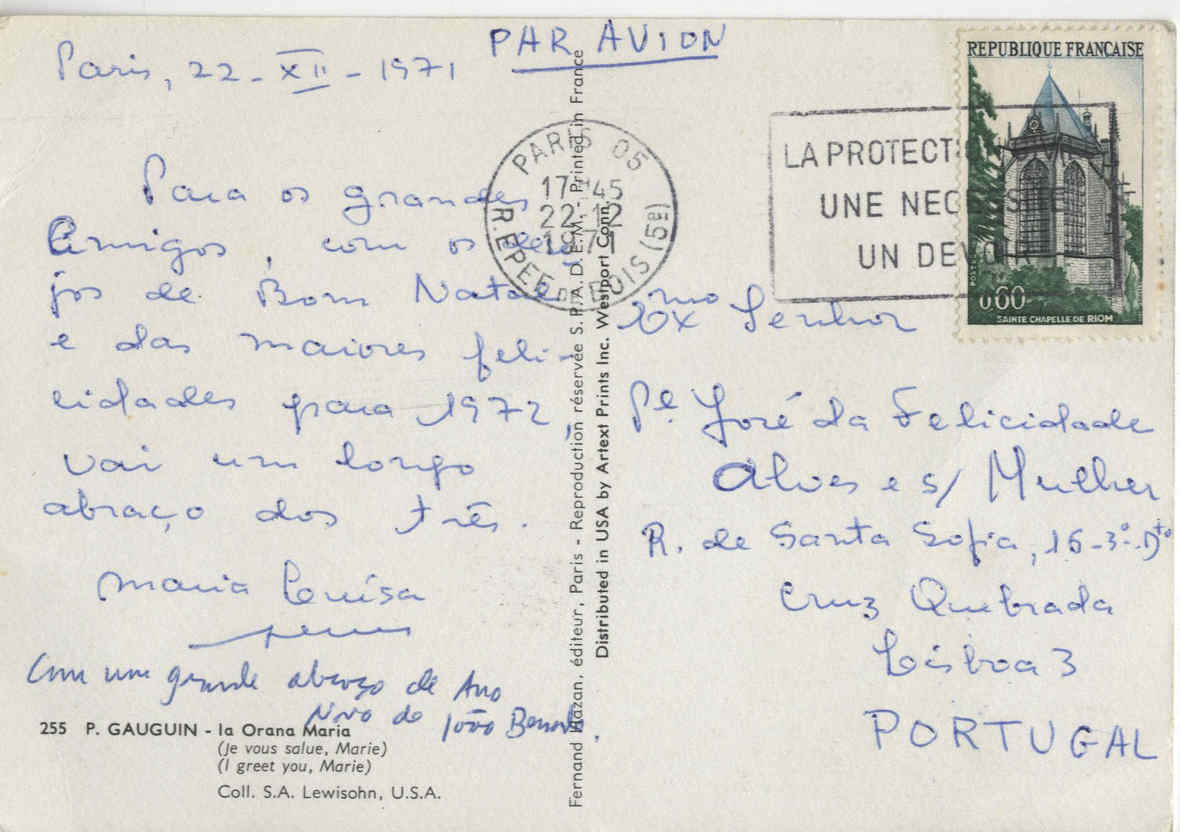 PAR AVION
Paris, 22-XII-1971
Para os grandes
Amigos, com os dese
jos de Bom Natal
e das maiores feli-
cidades para 1972,
vai um longo
abraço dos três.
Maria Luísa
Com um grande abraço de Ano
Novo de João
255 P. GAUGUIN - Ia Orana Maria
(Je vous salue, Marie)
(I greet you, Marie)
Coll. S.A. Lewisohn, U.S.A.
Fernand Hazan, éditeur, Paris - Reproduction réservée S.P.A.D.E.M. - Printed in France
Distributed in USA by Artext Prints Inc. Westport Conn.
PARIS 05
17H45
22-12
1971
R.EPEE DE BOIS (5E)
LA PROTECT
UNE NECESSITE
UN DEVOIR
REPUBLIQUE FRANÇAISE
POSTES
0,60
SAINTE CHAPELLE DE RIOM
Exmo Senhor
Pe. José da Felicidade
Alves e s/ Mulher
R. de Santa Sofia, 16-3º-Dto
Cruz Quebrada
Lisboa 3
PORTUGAL